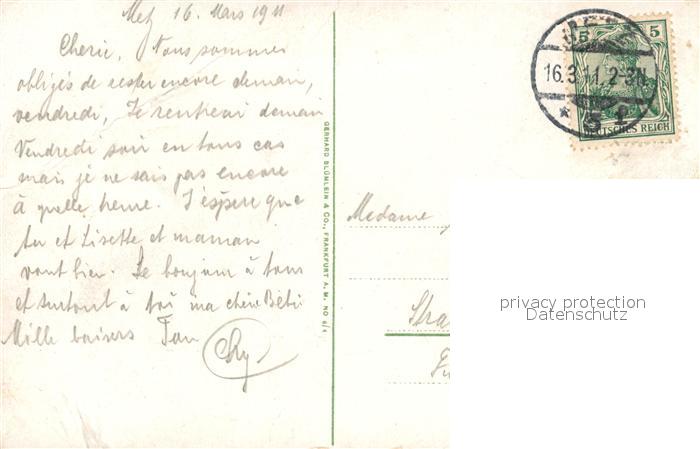 Metz 16. Mars 1911
Cherie, Nous sommes
obligés de rester encore demain,
vendredi, Je rentrerai demain
Vendredi soir en tous cas
mais je ne sais pas encore
à quelle heure. J'éspère que
tu et Lisette et maman
vont bien. Le bonjour à tous
et surtout à toi ma chère Bébé
Mille baisers Ton
GERHARD BLÜMLEIN & CO., FRANKFURT A. M. NO
5 5
16.3.11.2-3N
DEUTSCHES REICH
Madame
Stra
privacy protection
Datenschutz